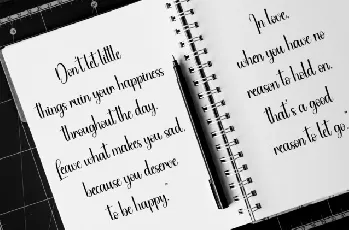 Don't let little
things ruin your happiness
throughout the day.
Leave what makes you sad,
because you deserve
to be happy."
In love,
when you have no
reason to hold on.
that's a good
reason to let go."